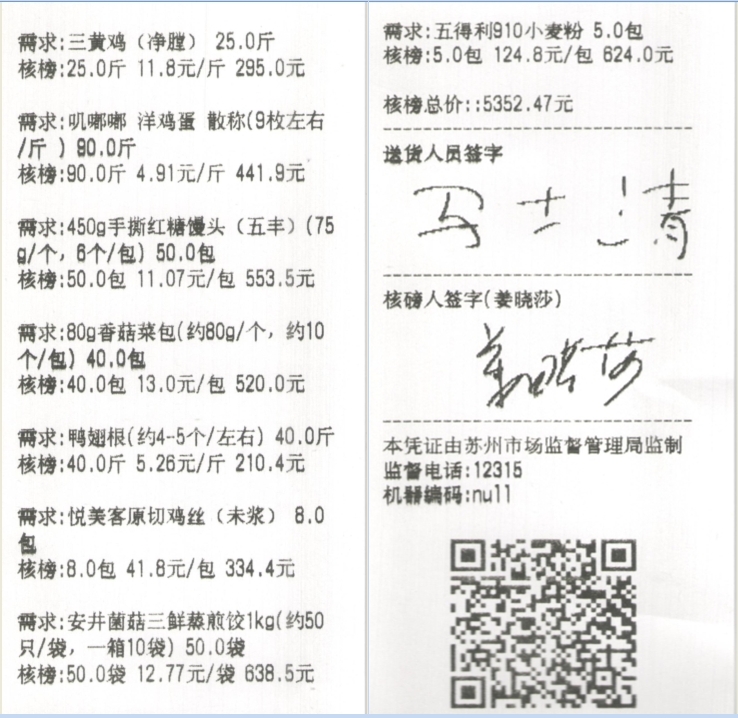 需求:三黄鸡（净膛） 25.0斤
核榜:25.0斤 11.8元/斤 295.0元
需求:叽嘟嘟 洋鸡蛋 散称(9枚左右
/斤 ) 90.0斤
核榜:90.0斤 4.91元/斤 441.9元
需求:450g手撕红糖馒头（五丰）(75
g/个，6个/包) 50.0包
核榜:50.0包 11.07元/包 553.5元
需求:80g香菇菜包(约80g/个，约10
个/包) 40.0包
核榜:40.0包 13.0元/包 520.0元
需求:鸭翅根(约4-5个/左右) 40.0斤
核榜:40.0斤 5.26元/斤 210.4元
需求:悦美客原切鸡丝（未浆） 8.0
包
核榜:8.0包 41.8元/包 334.4元
需求:安井菌菇三鲜蒸煎饺1kg(约50
只/袋，一箱10袋) 50.0袋
核榜:50.0袋 12.77元/袋 638.5元
需求:五得利910小麦粉 5.0包
核榜:5.0包 124.8元/包 624.0元
核榜总价::5352.47元
送货人员签字
核磅人签字(姜晓莎)
姜晓莎
本凭证由苏州市场监督管理局监制
监督电话:12315
机器编码:null